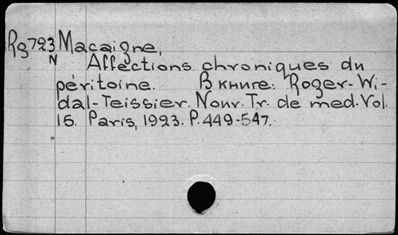 Rg723 Macaigne,
N Affections chroniques du
péritoine. В книге: Roger-Wi-
dal-Teissier. Nouv. Tr. de med. Vol.
15. Paris, 1923. P. 449-547.